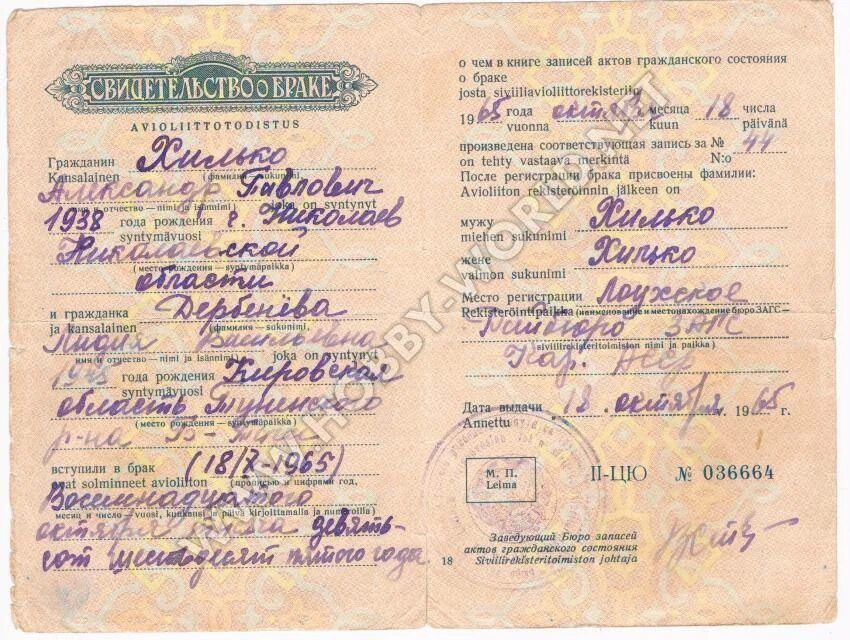 СВИДЕТЕЛЬСТВО О БРАКЕ
AVIOLIITTOTODISTUS
Гражданин Хилько
Kansalainen (фамилия — sukunimi,
Александр Павлович
имя и отчество — nimi ja isännimi) joka on syntynyt
1938 года рождения г. Николаев
syntymävuosi
Николаевской
(место рождения — syntymäpaikka)
области
и гражданка Дербенёва
ja kansalainen (фамилия — sukunimi,
Лидия Васильевна
имя и отчество — nimi ja isännimi) joka on syntynyt
года рождения Кировская
syntymävuosi
область
(место рождения — syntymäpaikka)
р-на
вступили в брак (18/X-1965)
ovat solmineet avioliiton (прописью и цифрами год,
Восемнадцатого
месяц и число — vuosi, kuukausi ja päivä kirjoittamalla ja numeroilla)
октября тысяча девять-
сот шестьдесят пятого года.
о чем в книге записей актов гражданского состояния
о браке
josta siviiliavioliittorekisteriin
1965 года октября месяца 18 числа
vuonna kuun päivänä
произведена соответствующая запись за № 44
on tehty vastaava merkintä N:o
После регистрации брака присвоены фамилии:
Avioliiton rekisteröinnin jälkeen on
мужу Хилько
miehen sukunimi
жене Хилько
vaimon sukunimi
Место регистрации Лоухское
Rekisteröintipaikka (наименование и местонахождение бюро ЗАГС —
Райбюро ЗАГС
siviilirekisteritoimiston nimi ja paikka)
Кар. АССР
Дата выдачи 18 октября 1965 г.
Annettu
М. П.
Leima
II-ЦЮ № 036664
Заведующий Бюро записей
актов гражданского состояния
Siviilirekisteritoimiston johtaja
18
WWW.HOBBY-WORLD.NET